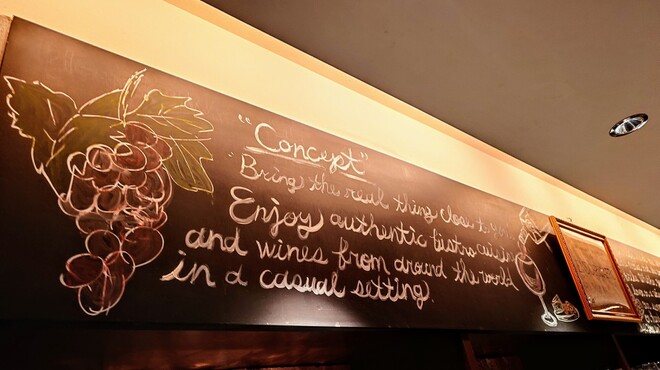 "Concept"
"Bring the real thing close to you
Enjoy authentic bistro cuisine
and wines from around the world
in a casual setting.